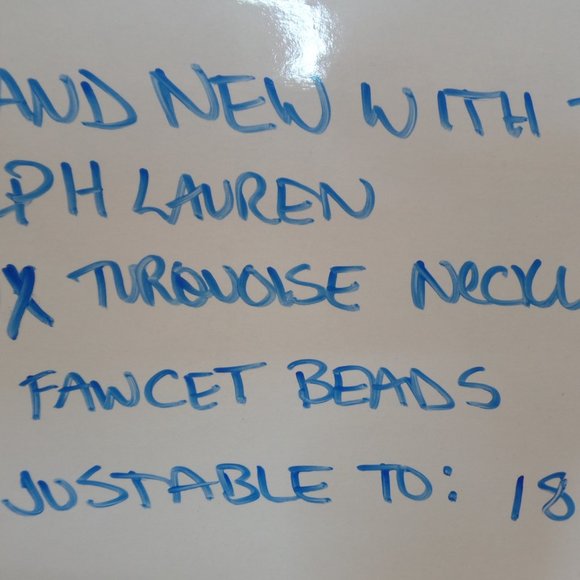 AND NEW WITH
PH LAUREN
X TURQUOISE NECKL
FAWCET BEADS
JUSTABLE TO: 18